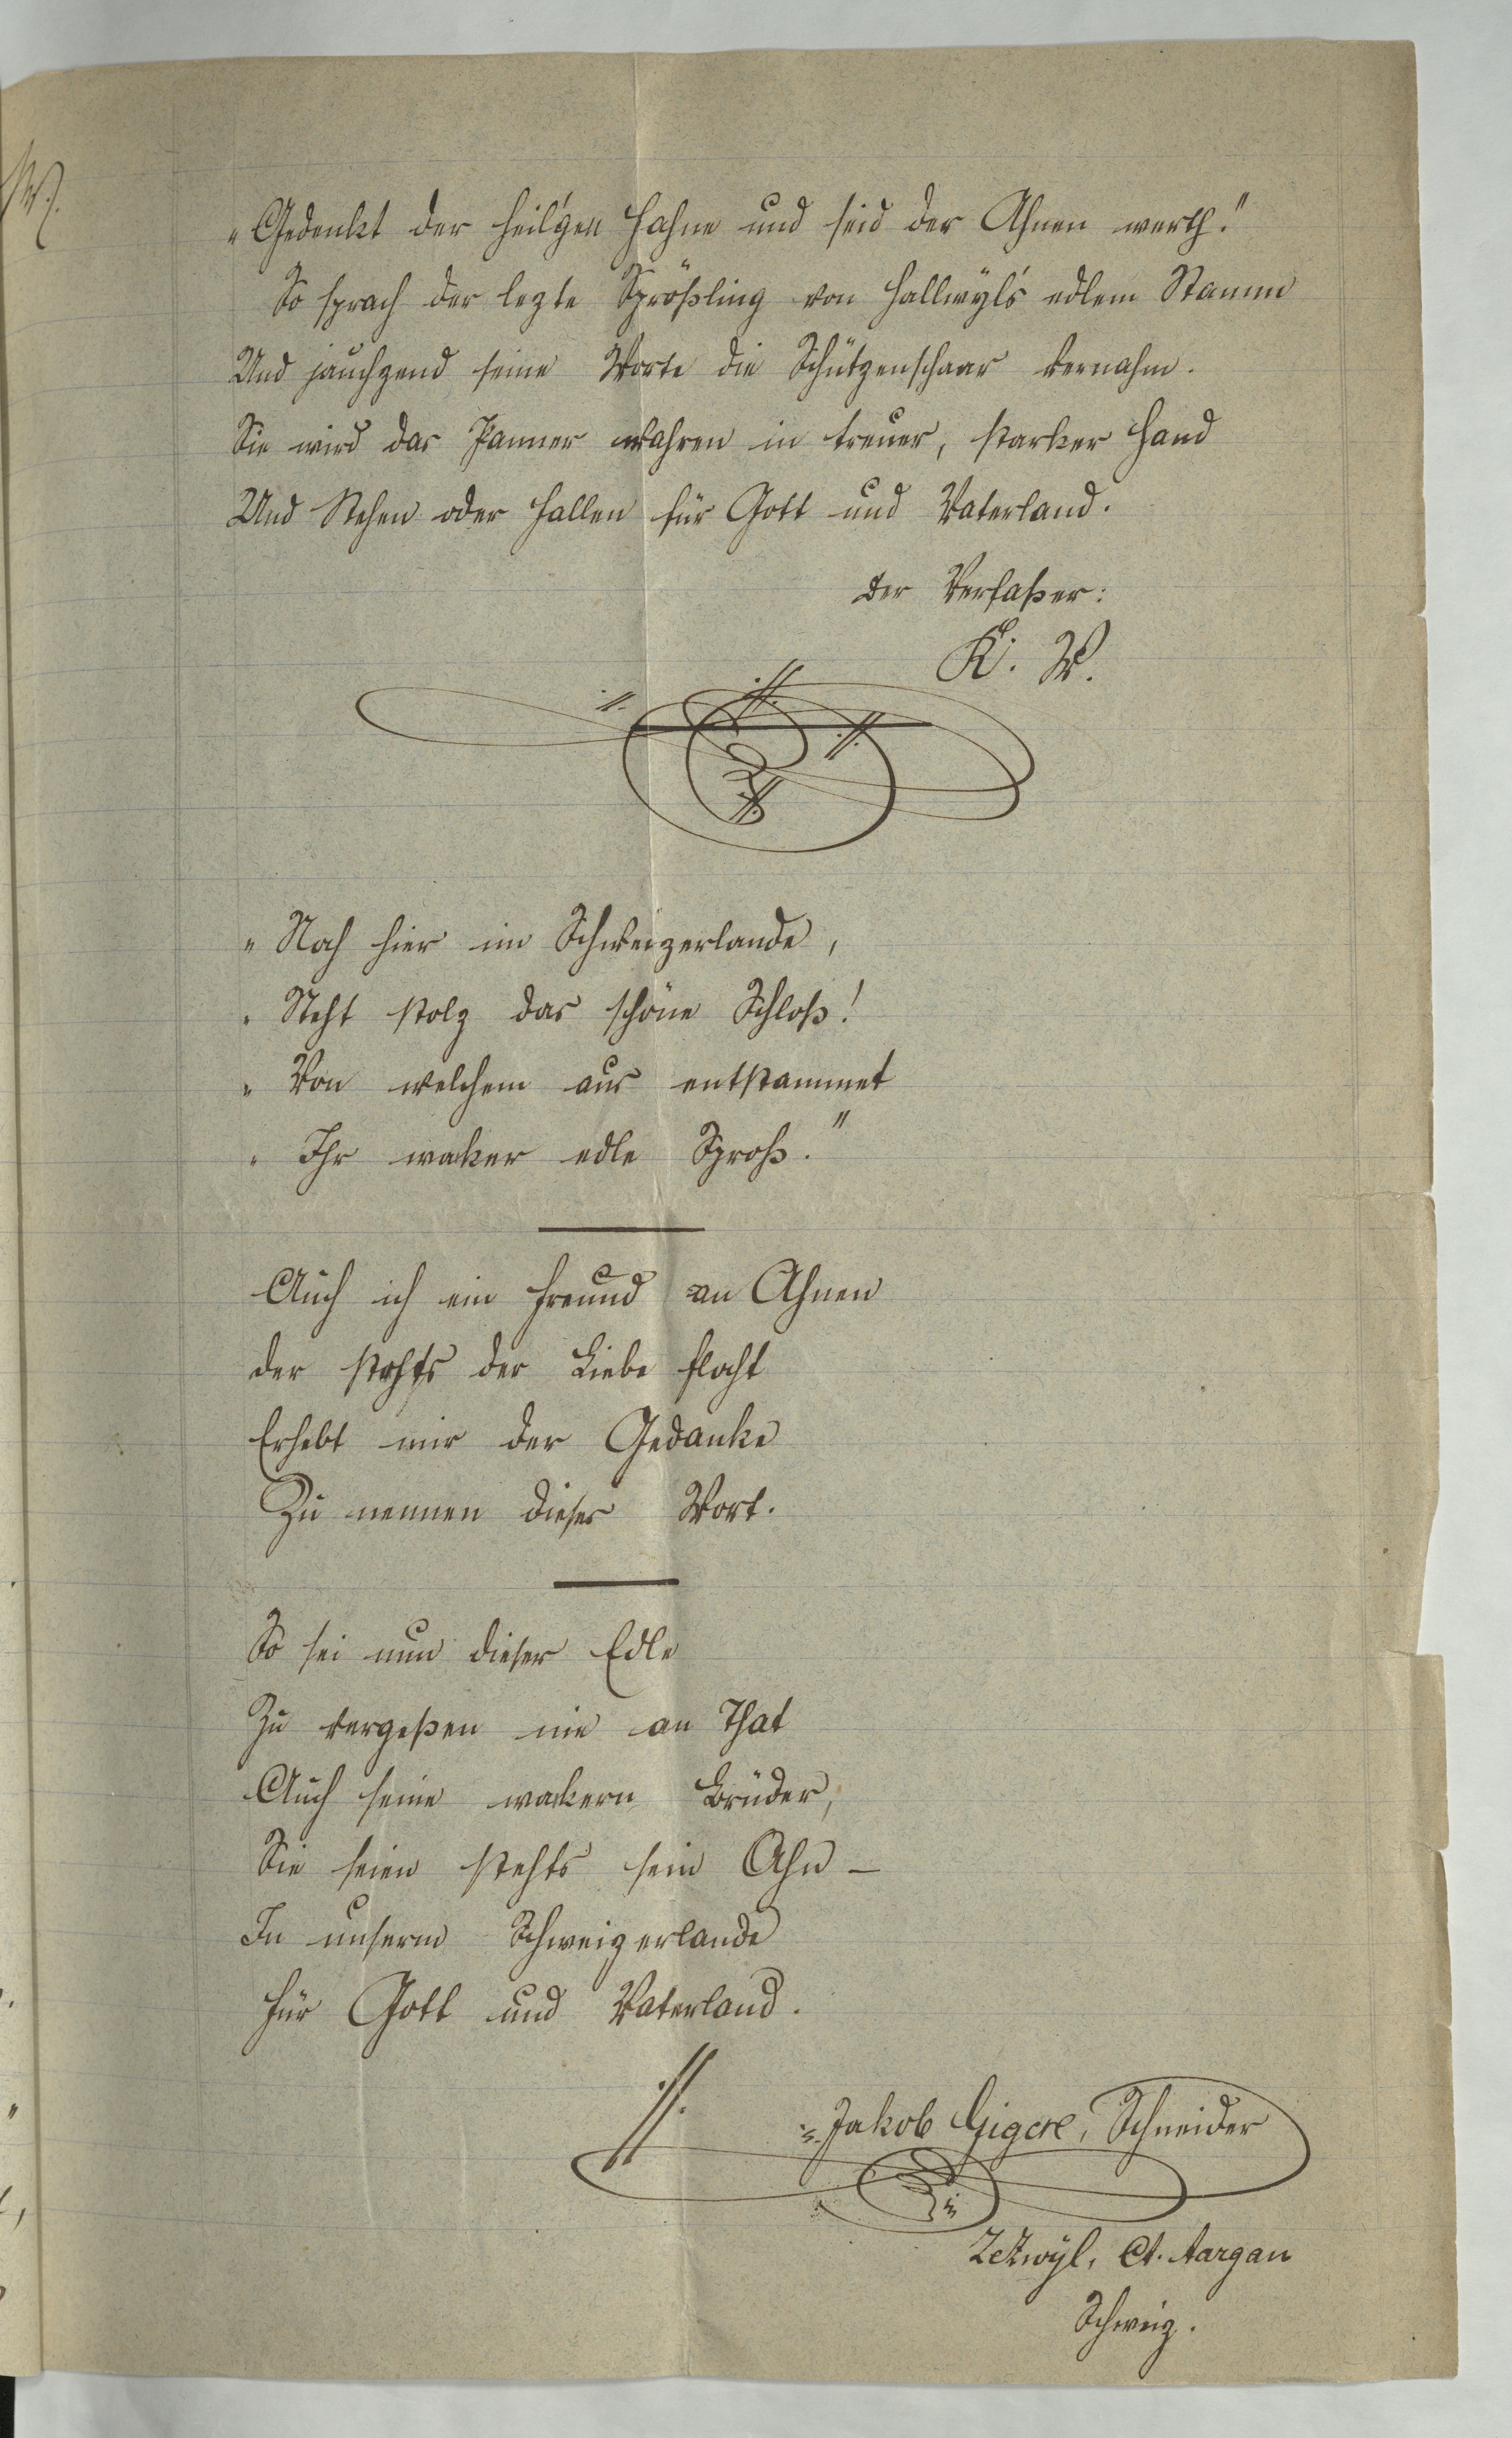 „Gedenkt der heil'gen Fahne und seid der Ahnen werth."
So sprach der lezte Sprößling von Hallwyl's edlem Stamm
Und jauchzend seine Worte die Schützenschaar vernahm.
Sie wird das Panner wahren in treuer, starker Hand
Und Stehen oder Fallen für Gott und Vaterland.
Der Verfaßer:
K. W.
„Noch hier im Schweizerlande,
„Steht stolz das schöne Schloß!
„Von welchem aus entstammet
„Ihr waker edle Sproß."
Auch ich ein Freund an Ahnen
der stehts der Liebe flocht
Erhebt mir der Gedanke
Zu nennen dieses Wort.
So sei nun dieser Edle
Zu vergeßen nie an That
Auch seine wakern Brüder,
Sie seien stehts sein Ahn –
In unserm Schweizerlande
für Gott und Vaterland.
Jakob Giger, Schneider
Zetzwyl, Ct. Aargau
Schweiz.